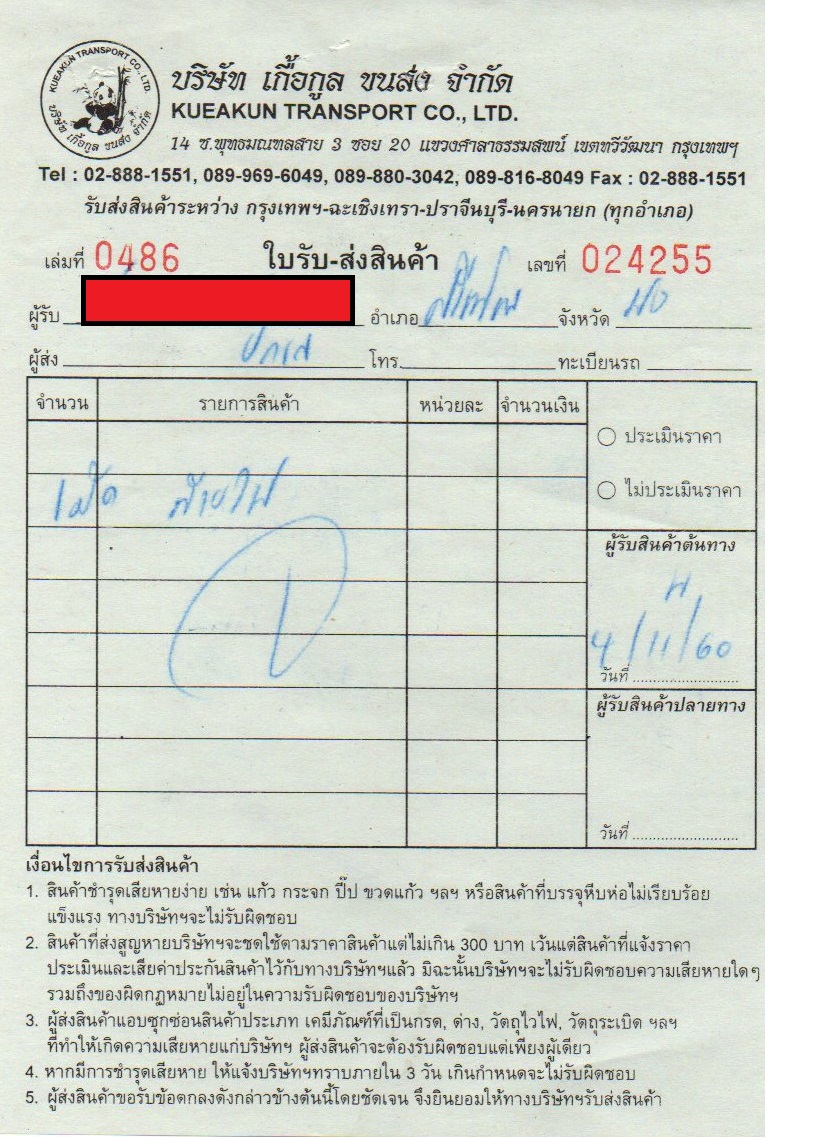 KUEAKUN TRANSPORT CO., LTD.
บริษัท เกื้อกูล ขนส่ง จำกัด
บริษัท เกื้อกูล ขนส่ง จำกัด
KUEAKUN TRANSPORT CO., LTD.
14 ซ.พุทธมณฑลสาย 3 ซอย 20 แขวงศาลาธรรมสพน์ เขตทวีวัฒนา กรุงเทพฯ
Tel : 02-888-1551, 089-969-6049, 089-880-3042, 089-816-8049 Fax : 02-888-1551
รับส่งสินค้าระหว่าง กรุงเทพฯ-ฉะเชิงเทรา-ปราจีนบุรี-นครนายก (ทุกอำเภอ)
เล่มที่ 0486 ใบรับ-ส่งสินค้า เลขที่ 024255
ผู้รับ อำเภอ จังหวัด
ผู้ส่ง โทร. ทะเบียนรถ
จำนวน รายการสินค้า หน่วยละ จำนวนเงิน
ประเมินราคา
ไม่ประเมินราคา
1 มัด สายไฟ
ผู้รับสินค้าต้นทาง
4/11/60
วันที่
ผู้รับสินค้าปลายทาง
วันที่
เงื่อนไขการรับส่งสินค้า
1. สินค้าชำรุดเสียหายง่าย เช่น แก้ว กระจก ปี๊ป ขวดแก้ว ฯลฯ หรือสินค้าที่บรรจุหีบห่อไม่เรียบร้อย
แข็งแรง ทางบริษัทฯจะไม่รับผิดชอบ
2. สินค้าที่ส่งสูญหายบริษัทฯจะชดใช้ตามราคาสินค้าแต่ไม่เกิน 300 บาท เว้นแต่สินค้าที่แจ้งราคา
ประเมินและเสียค่าประกันสินค้าไว้กับทางบริษัทฯแล้ว มิฉะนั้นบริษัทฯจะไม่รับผิดชอบความเสียหายใดๆ
รวมถึงของผิดกฎหมายไม่อยู่ในความรับผิดชอบของบริษัทฯ
3. ผู้ส่งสินค้าแอบซุกซ่อนสินค้าประเภท เคมีภัณฑ์ที่เป็นกรด, ด่าง, วัตถุไวไฟ, วัตถุระเบิด ฯลฯ
ที่ทำให้เกิดความเสียหายแก่บริษัทฯ ผู้ส่งสินค้าจะต้องรับผิดชอบแต่เพียงผู้เดียว
4. หากมีการชำรุดเสียหาย ให้แจ้งบริษัทฯทราบภายใน 3 วัน เกินกำหนดจะไม่รับผิดชอบ
5. ผู้ส่งสินค้าขอรับข้อตกลงดังกล่าวข้างต้นนี้โดยชัดเจน จึงยินยอมให้ทางบริษัทฯรับส่งสินค้า